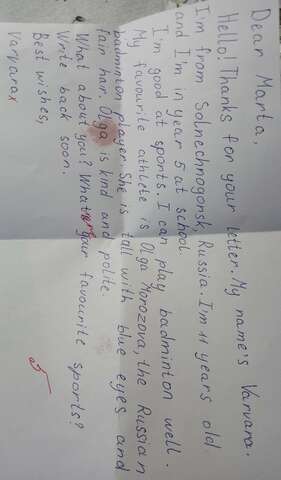 Dear Marta,
Hello! Thanks for your letter. My name's Varvara.
I'm from Solnechnogorsk, Russia. I'm 11 years old
and I'm in year 5 at school
I'm good at sports. I can play badminton well.
My favourite athlete is Olga Morozova, the Russian
badminton player. She is tall with blue eyes and
fair hair. Olga is kind and polite
What about you? What are your favourite sports?
Write back soon.
Best wishes,
Varvara
5